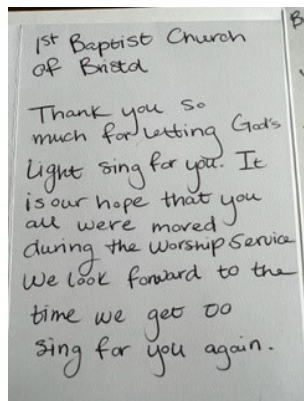 1st Baptist Church
of Bristol
Thank you so
much for letting God's
Light sing for you. It
is our hope that you
all were moved
during the Worship Service
We look forward to the
time we get to
sing for you again.
B